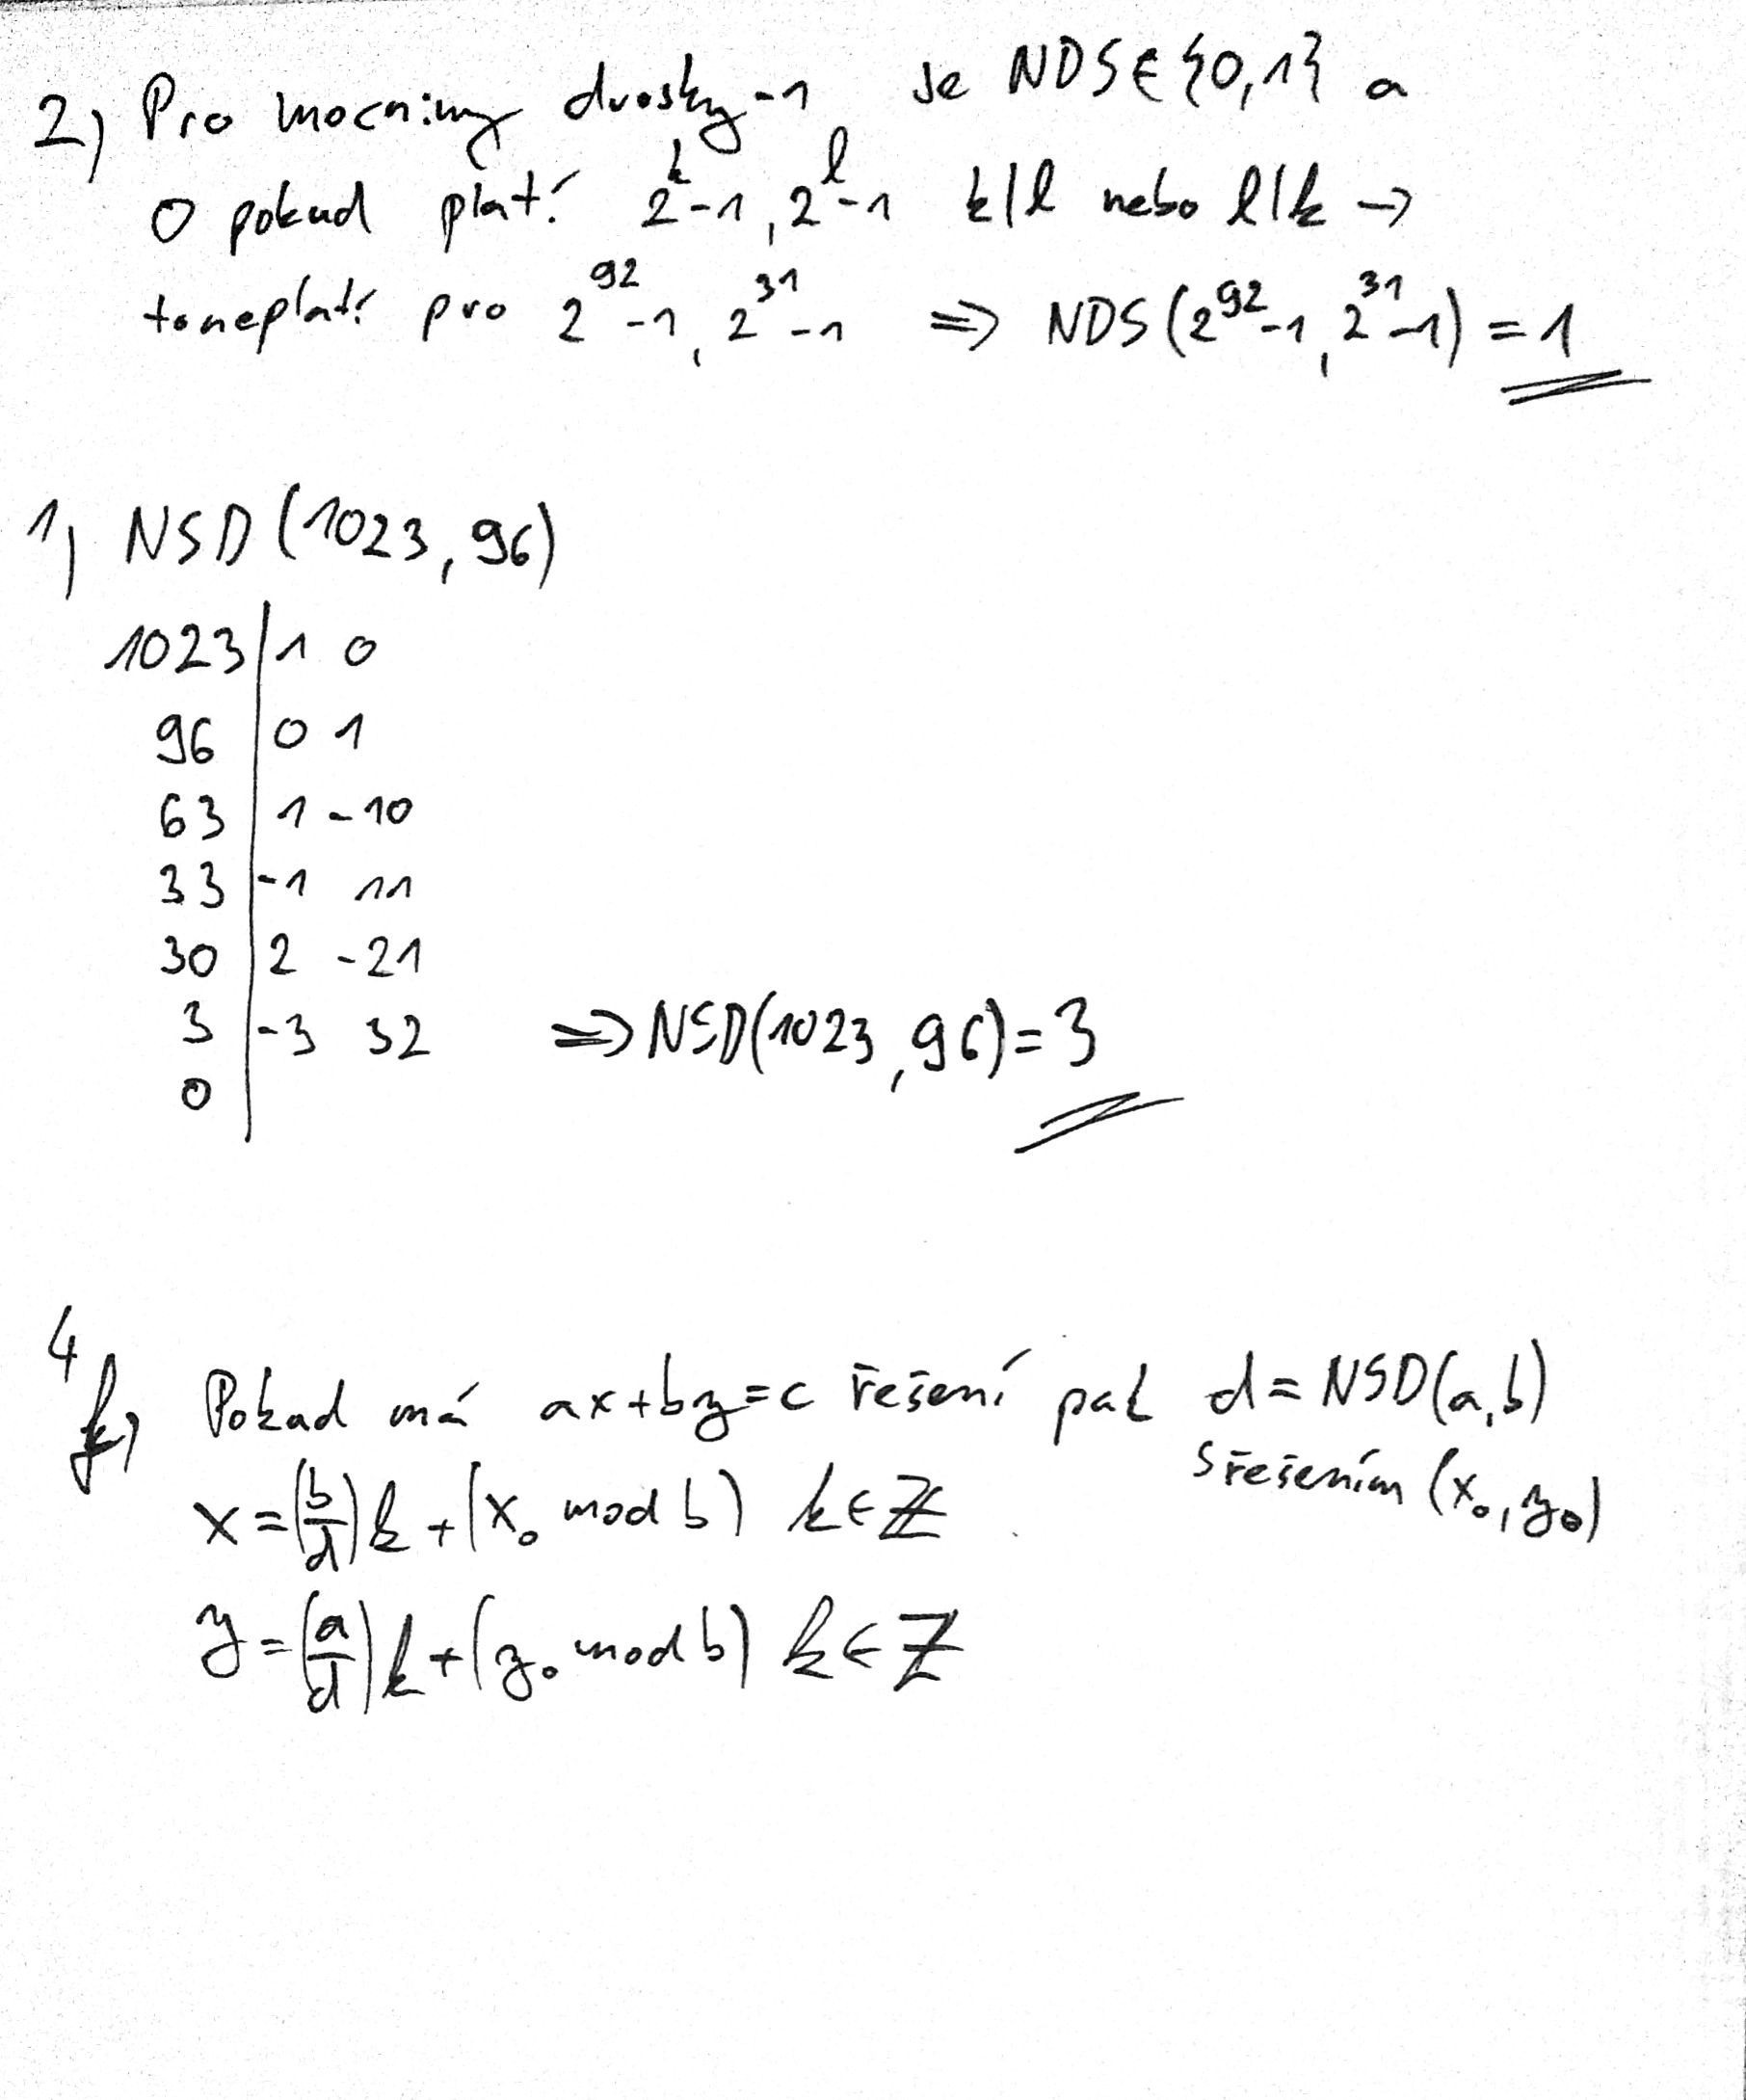 2) Pro mocniny dvosky-1 je NDS∈{0,1} a
0 pokud platí 2^k-1, 2^l-1 k|l nebo l|k →
toneplatí pro 2^92-1, 2^31-1 ⇒ NDS(2^92-1, 2^31-1) = 1
1) NSD(1023, 96)
1023 | 1 0
96 | 0 1
63 | 1 -10
33 | -1 11
30 | 2 -21
3 | -3 32 ⇒ NSD(1023, 96) = 3
0 |
4
Pokud má ax+by=c řešení pak d = NSD(a,b)
s řešením (x₀, y₀)
x = (b/d)k + (x₀ mod b) k∈ℤ
y = (a/d)k + (y₀ mod b) k∈ℤ